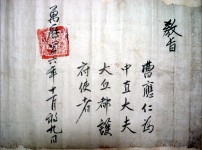 敎旨
曹應仁爲
中直大夫
大丘都護
府使者
萬曆
六年十月初九日